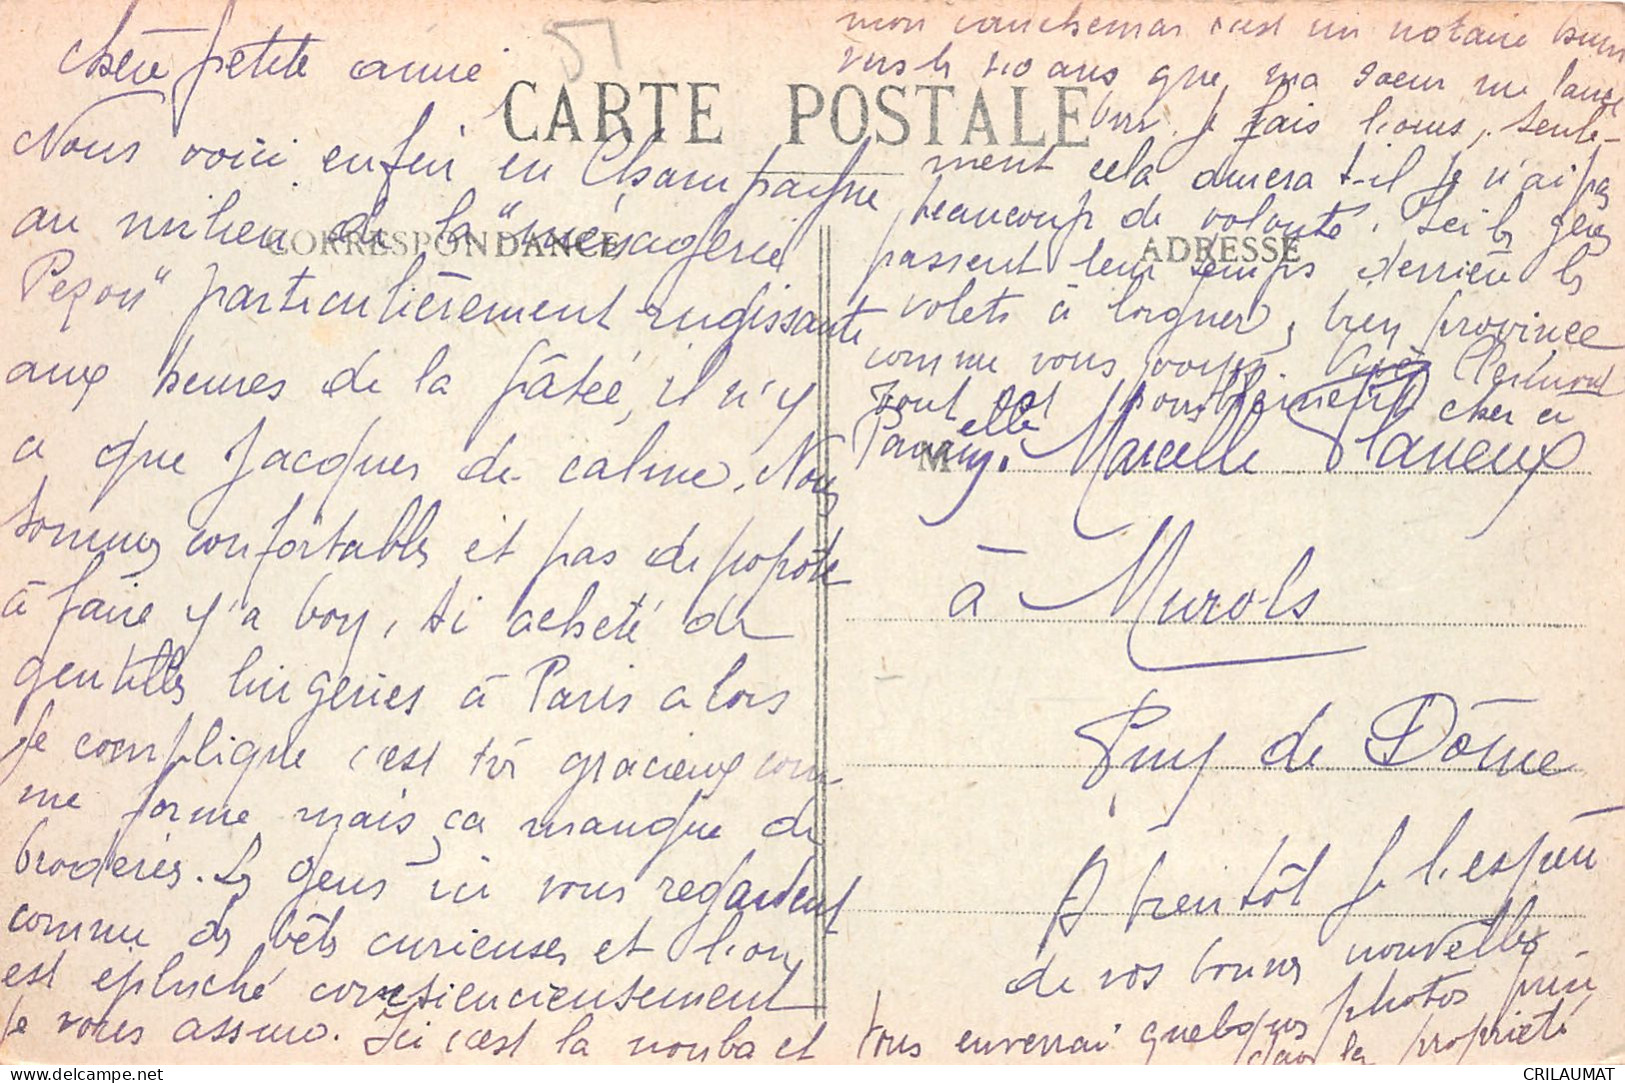 51
CARTE POSTALE
CORRESPONDANCE
ADRESSE
Chère petite amie
Nous voici enfin en Champagne
au milieu de la "ménagerie
Pezon" particulièrement rugissante
aux heures de la pâtée, il n'y
a que Jacques de calme. Nous
sommes confortables et pas de popote
à faire y'a bon, ai acheté de
gentilles lingeries à Paris alors
je complique c'est très gracieux com-
me forme mais ça manque de
broderies. Les gens ici vous regardent
comme des bêtes curieuses et l'on
est épluché consciencieusement
je vous assure. Ici c'est la nouba et
mon cauchemar c'est un notaire
vers les 40 ans que ma soeur me lance
je fais l'ours, seule-
ment cela durera t-il je n'ai pas
beaucoup de volonté. Ici les gens
passent leur temps derrière les
volets à lorgner, bien province
comme vous voyez. Clermont
Tout est cher à
Pargny.
Melle Marcelle Planeix
à Murols
Puy de Dôme
A bientôt je l'espère
de vos bonnes nouvelles
vous enverrai quelques photos
dans la propriété
CRILAUMAT